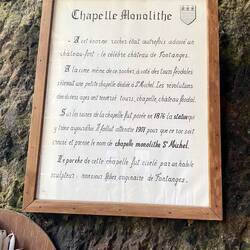 Chapelle Monolithe
- A cet énorme rocher était autrefois adossé un
château-fort : le célèbre château de Fontanges.
A la cime même de ce rocher, à côté des tours féodales
s'élevait une petite chapelle dédiée à St Michel. Les révolutions
des divers âges ont renversé tours, chapelle, château féodal.
Sur les ruines de la chapelle fut posée en 1876 la statue qui
y trône aujourd'hui. Il fallut attendre 1901 pour que ce roc soit
creusé et prenne le nom de chapelle monolithe St Michel.
Le porche de cette chapelle fut ciselé par un habile
sculpteur : monsieur originaire de Fontanges.